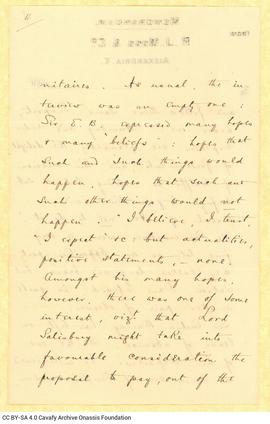 11
FROM
R. J. Moss & Co
ALEXANDRIA
nitaires. As usual, the in-
terview was an empty one:
Sir E. B. expressed many hopes
& many "beliefs": hopes that
such and such things would
happen, hopes that such and
such other things would not
happen. "I believe, I trust
"I expect" &c: but actualities,
positive statements, - none.
Amongst his many hopes,
however, there was one of some
interest, vizt that Lord
Salisbury might take into
favourable consideration the
proposal to pay, out of the
CC BY-SA 4.0 Cavafy Archive Onassis Foundation